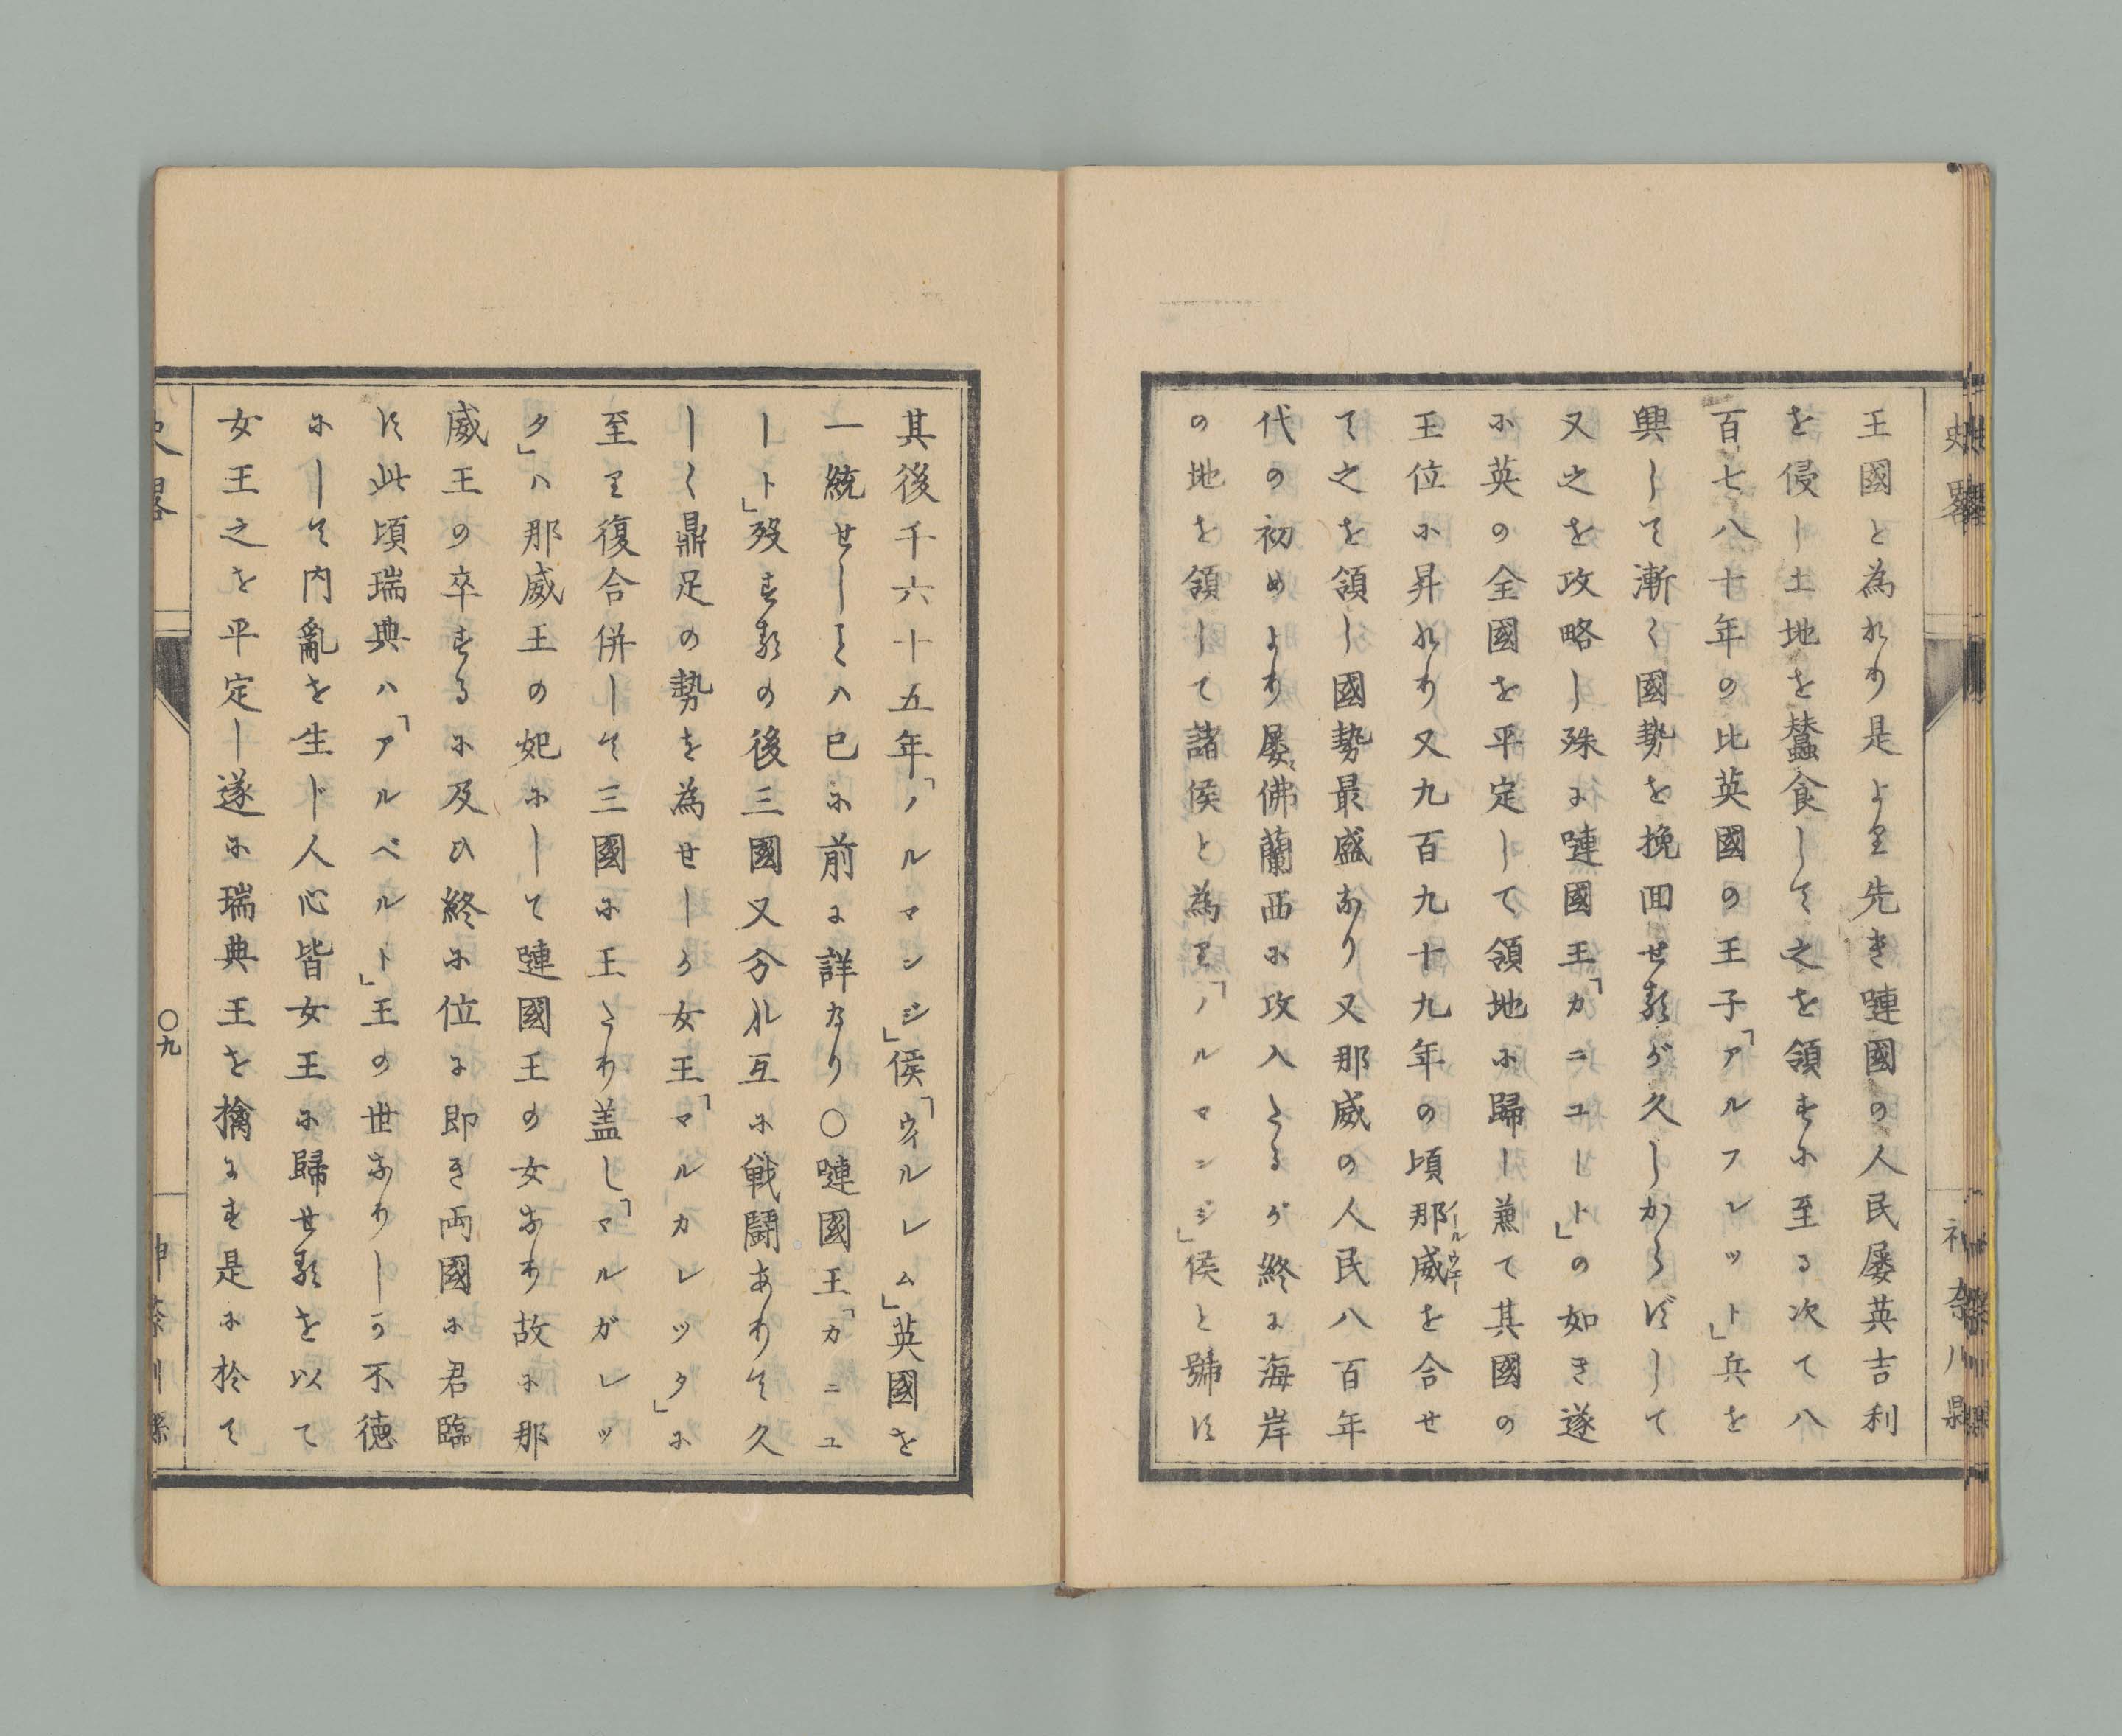 王國と為れり是より先き嗹國の人民屡英吉利
を侵し土地を蠶食して之を領すに至る次て八
百七八十年の比英國の王子「アルフレット」兵を
興して漸く國勢を挽回せるが久しからずして
又之を攻略し殊に嗹國王「カニユート」の如き遂
に英の全國を平定して領地に歸し兼て其國の
王位に昇れり又九百九十九年の頃那威を合せ
ノールウヰー
て之を領し國勢最盛なり又那威の人民八百年
代の初めより屡〻佛蘭西に攻入たるが終に海岸
の地を領して諸侯と為り「ノルマンジ」侯と號す
其後千六十五年「ノルマンジ」侯「ウィルレム」英國を
一統せしことハ已に前に詳なり〇嗹國王「カニユ
ート」歿するの後三國又分れ互に戦鬪ありて久
しく鼎足の勢を為せしが女王「マルカレッタ」に
至り復合併して三國に王たり盖し「マルガレッ
タ」ハ那威王の妃にして嗹國王の女なり故に那
威王の卒するに及ひ終に位に即き両國に君臨
す此頃瑞典ハ「アルベルト」王の世なりしが不徳
にして内亂を生ド人心皆女王に歸せるを以て
女王之を平定し遂に瑞典王を擒にす是に於て
史畧
〇九
神奈川縣